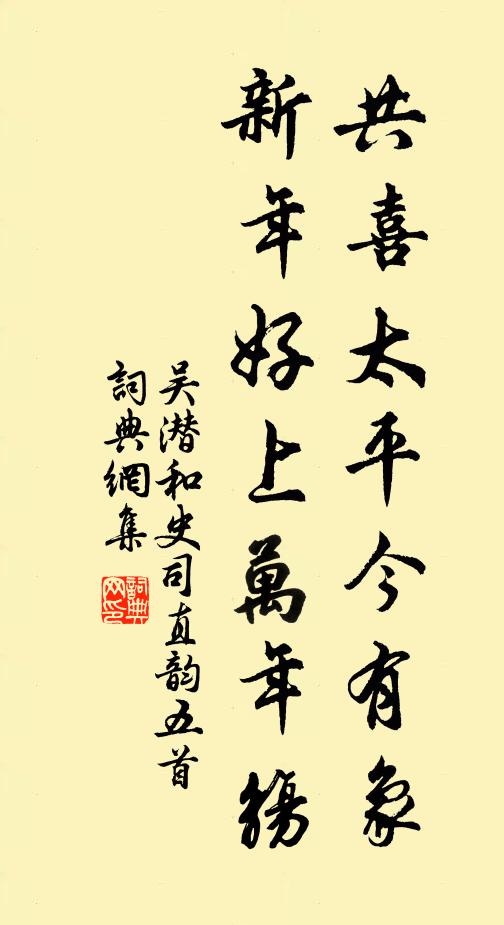 共喜太平今有象
新年好上萬年觴
吴潜和史司直韵五首
詞典網集
詞典網印